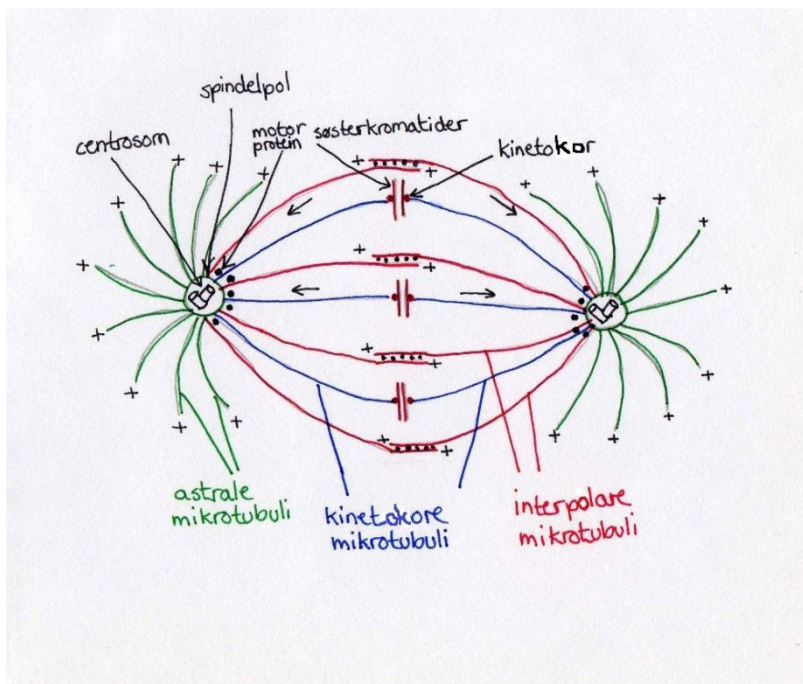 spindelpol
centrosom
motor
protein
søsterkromatider
kinetokor
astrale
mikrotubuli
kinetokore
mikrotubuli
interpolare
mikrotubuli